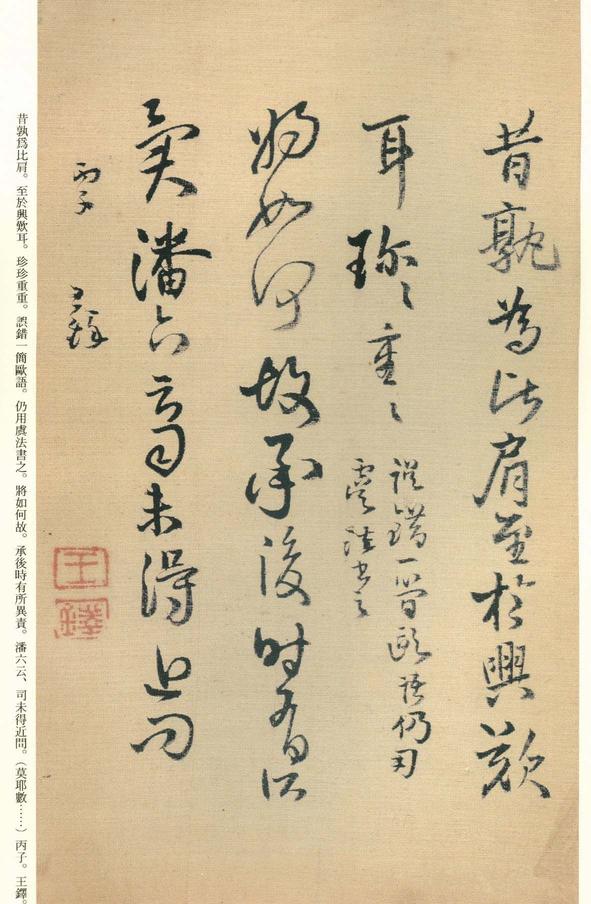 昔孰為比肩至於興歎
耳珍〻重〻
誤錯一簡歐語仍用
虞法書之
將如何故承後時有所
異責潘六云司未得近問
丙子
王鐸
王鐸
昔孰爲比肩。至於興歎耳。珍珍重重。誤錯一簡歐語。仍用虞法書之。將如何故。承後時有所異責。潘六云、司未得近問。(莫耶數……)丙子。王鐸。